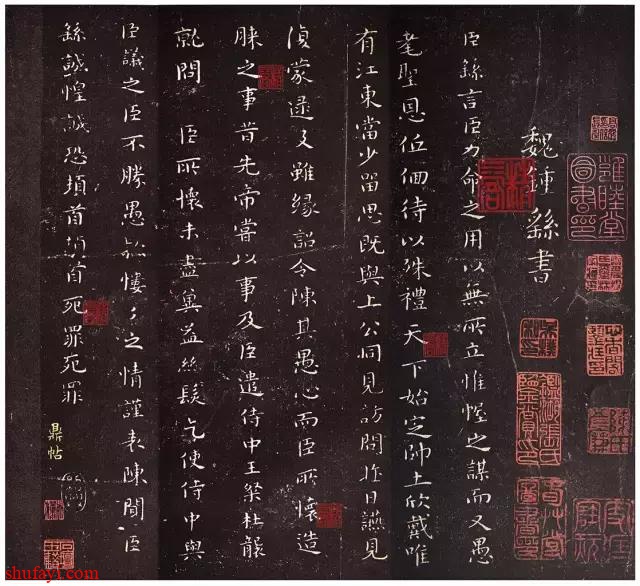 魏鍾繇書
臣繇言臣力命之用以無所立惟幄之謀而又愚
耄聖恩低佪待以殊禮天下始定帥土欣戴唯
有江東當少留思既與上公同見訪問昨日讌見
復蒙逮及雖緣詔令陳其愚心而臣所懷造
膝之事昔先帝嘗以事及臣遣侍中王粲杜襲
就問 臣所懷未盡冀益絲髮乞使侍中與
臣議之臣不勝愚款慺々之情謹表陳聞臣
繇誠惶誠恐頓首頓首死罪死罪
鼎帖
shufayl.com